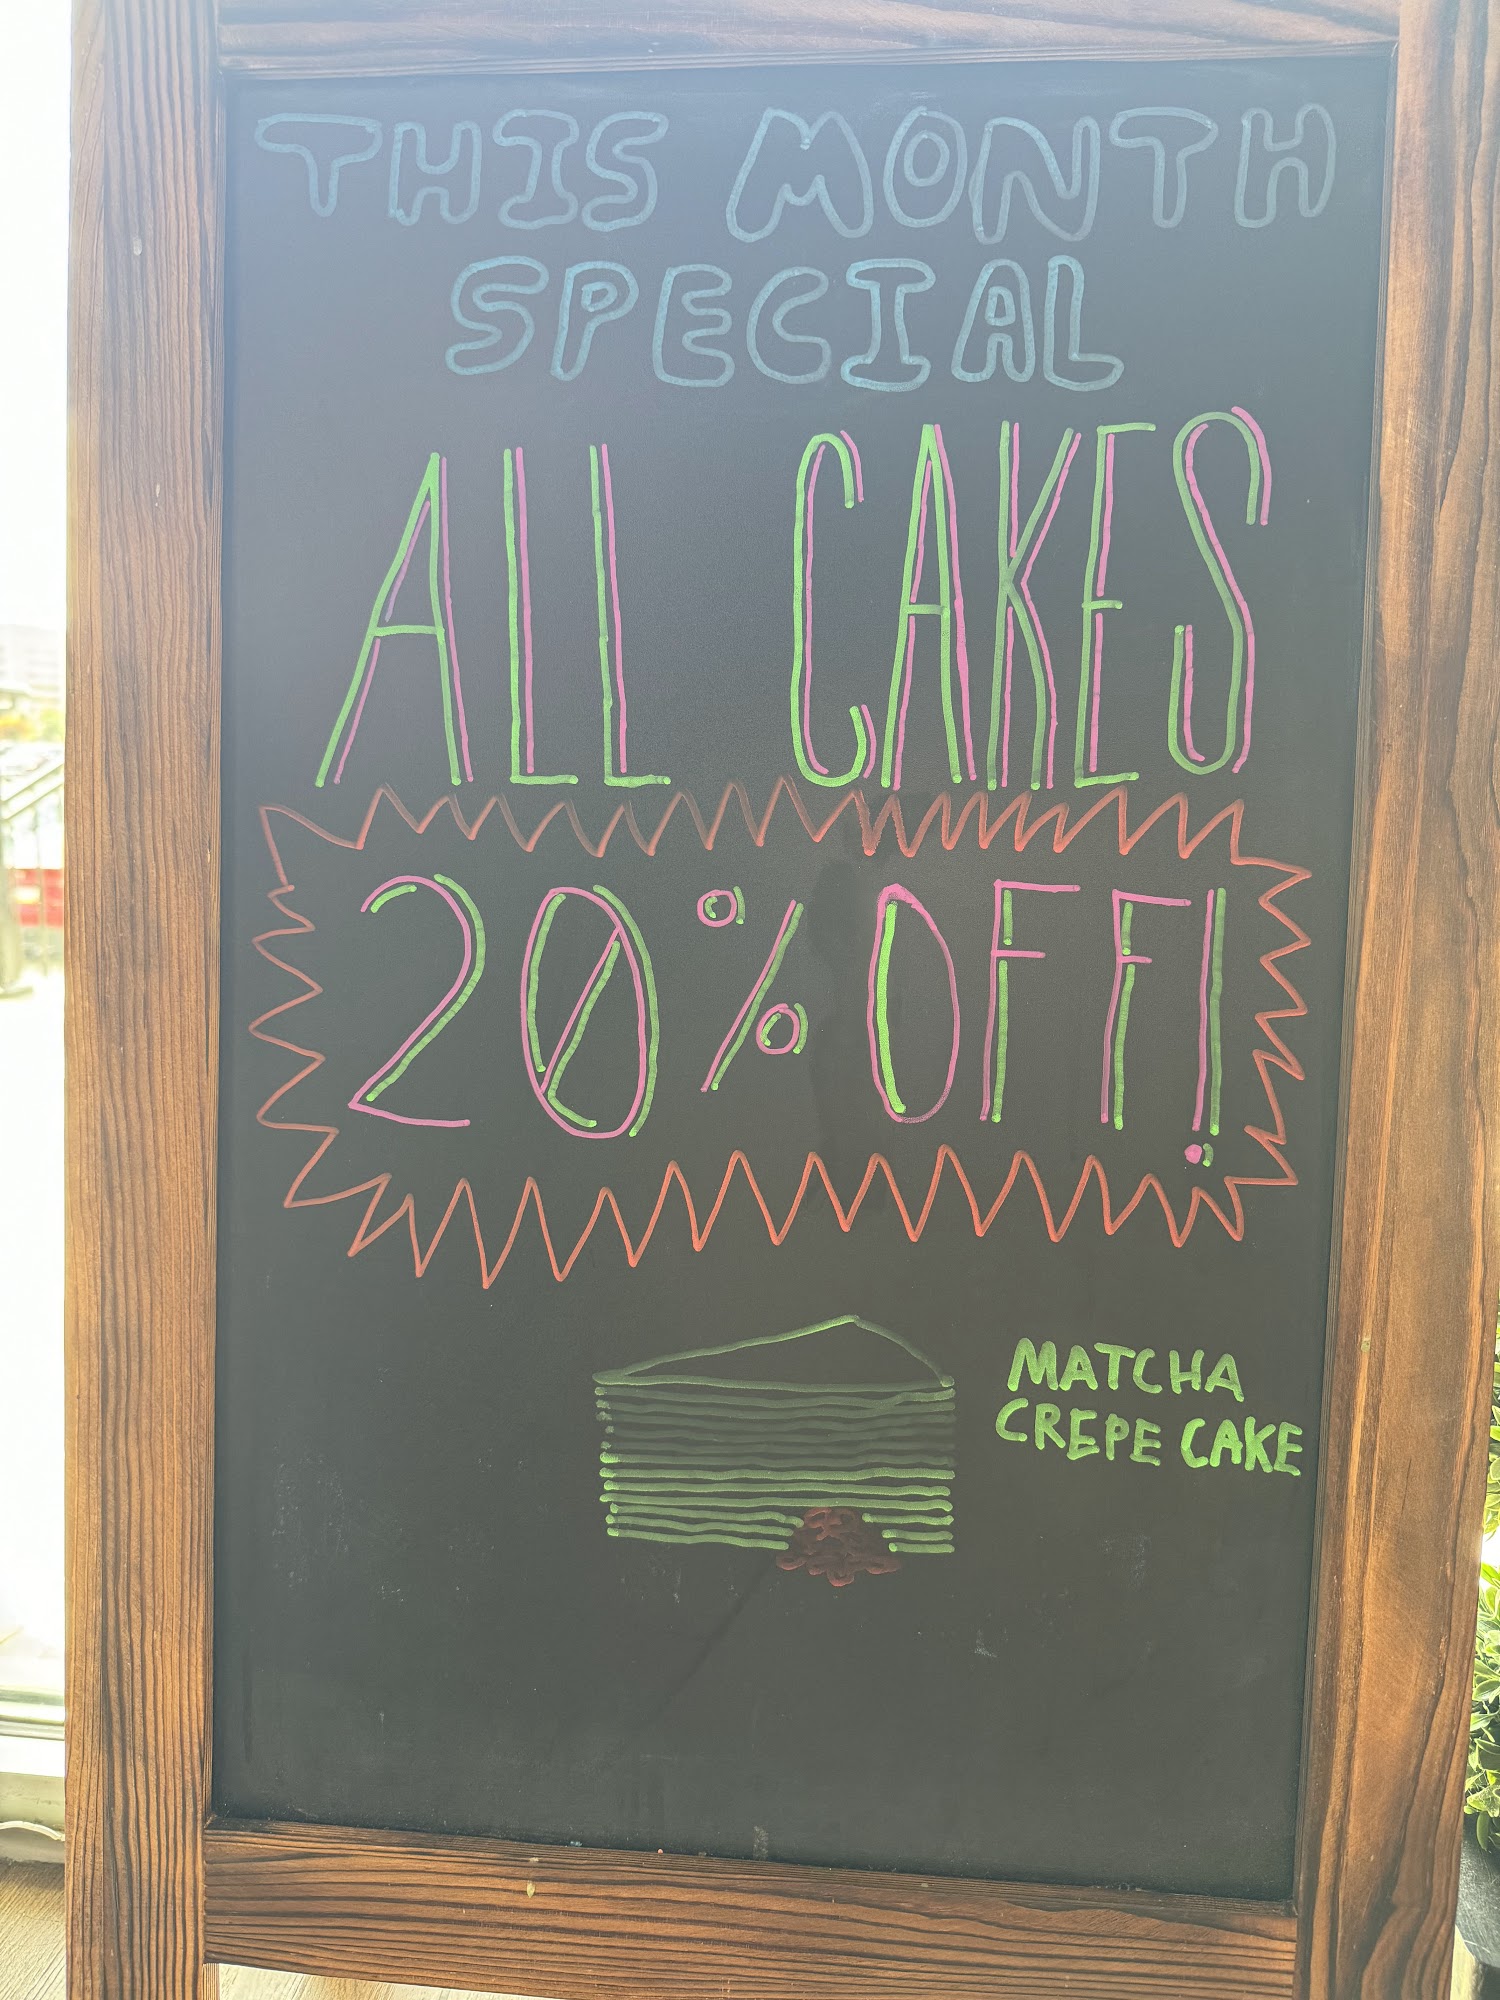 THIS MONTH
SPECIAL
ALL CAKES
20% OFF!
MATCHA
CREPE CAKE